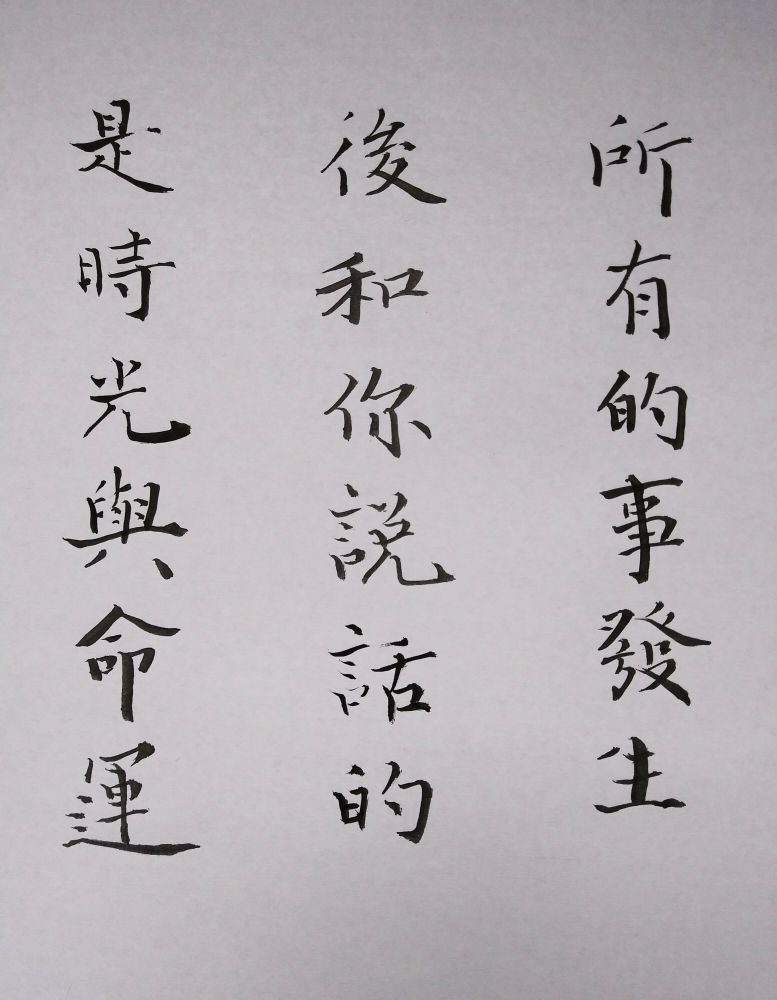 所有的事發生
後和你説話的
是時光與命運